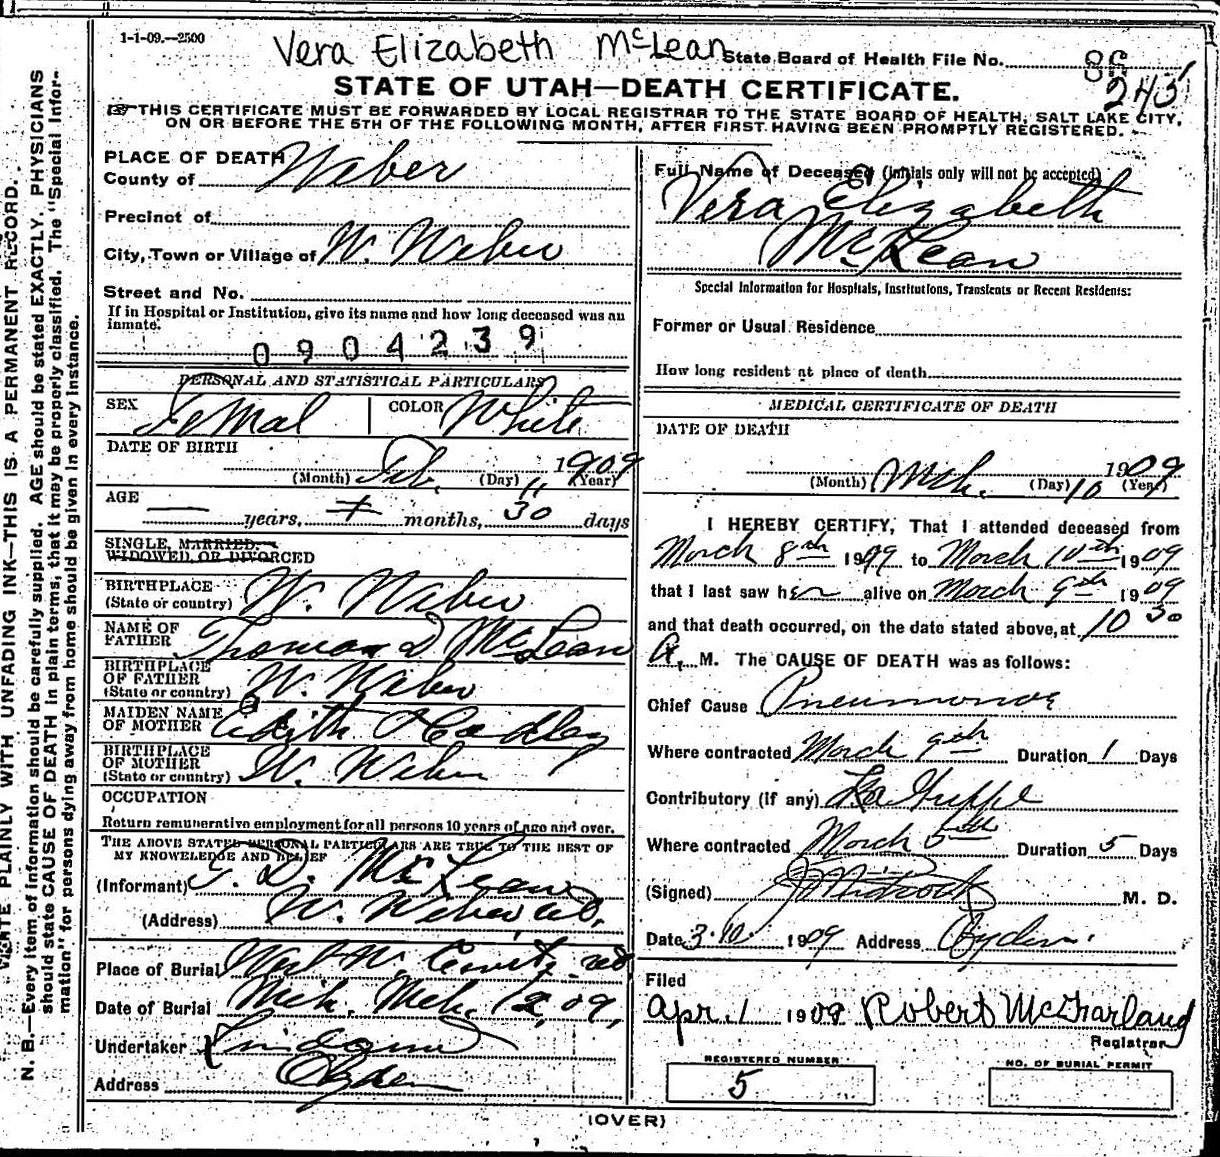 1-1-09.—2500
Vera Elizabeth McLean
State Board of Health File No. 86
243
STATE OF UTAH—DEATH CERTIFICATE.
☞ THIS CERTIFICATE MUST BE FORWARDED BY LOCAL REGISTRAR TO THE STATE BOARD OF HEALTH, SALT LAKE CITY,
ON OR BEFORE THE 5TH OF THE FOLLOWING MONTH, AFTER FIRST HAVING BEEN PROMPTLY REGISTERED.
WRITE PLAINLY WITH UNFADING INK—THIS IS A PERMANENT RECORD.
N. B.—Every item of information should be carefully supplied. AGE should be stated EXACTLY. PHYSICIANS
should state CAUSE OF DEATH in plain terms, that it may be properly classified. The "Special Infor-
mation" for persons dying away from home should be given in every instance.
PLACE OF DEATH
County of Weber
Precinct of
City, Town or Village of W. Weber
Street and No.
If in Hospital or Institution, give its name and how long deceased was an
inmate.
0904239
PERSONAL AND STATISTICAL PARTICULARS
SEX Femal COLOR White
DATE OF BIRTH
(Month) Feb. (Day) 11 1909 (Year)
AGE
— years, + months, 30 days
SINGLE, MARRIED,
WIDOWED, OR DIVORCED
BIRTHPLACE
(State or country) W. Weber
NAME OF
FATHER Thomas D McLean
BIRTHPLACE
OF FATHER
(State or country) W. Weber
MAIDEN NAME
OF MOTHER Edith Hadley
BIRTHPLACE
OF MOTHER
(State or country) W. Weber
OCCUPATION
Return remunerative employment for all persons 10 years of age and over.
THE ABOVE STATED PERSONAL PARTICULARS ARE TRUE TO THE BEST OF
MY KNOWLEDGE AND BELIEF
(Informant) T. D. McLean
(Address) W. Weber
Place of Burial West W.
Date of Burial Mch. Mch. 12, 09,
Undertaker Lindquist
Address Ogden
Full Name of Deceased (initials only will not be accepted)
Vera Elizabeth
McLean
Special Information for Hospitals, Institutions, Transients or Recent Residents:
Former or Usual Residence
How long resident at place of death
MEDICAL CERTIFICATE OF DEATH
DATE OF DEATH
(Month) Mch. (Day) 10 1909 (Year)
I HEREBY CERTIFY, That I attended deceased from
March 8th 1909 to March 10th 1909
that I last saw her alive on March 9th 1909
and that death occurred, on the date stated above, at 10 30
A. M. The CAUSE OF DEATH was as follows:
Chief Cause Pneumonia
Where contracted March 9th Duration 1 Days
Contributory (if any) La Grippe
Where contracted March 5th Duration 5 Days
(Signed) M. D.
Date 3-10 1909 Address Ogden.
Filed
Apr. 1 1909 Robert McFarland
Registrar
REGISTERED NUMBER
5
NO. OF BURIAL PERMIT
(OVER)